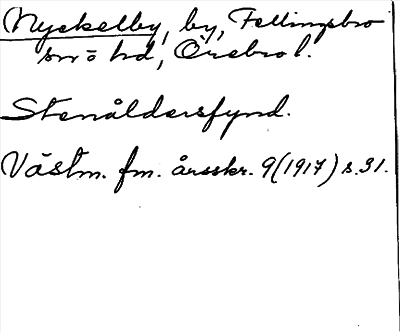 Nyckelby, by, Fellingsbro
sn o hd, Örebro l.
Stenåldersfynd.
Västm. fm. årsskr. 9(1917) s. 31.